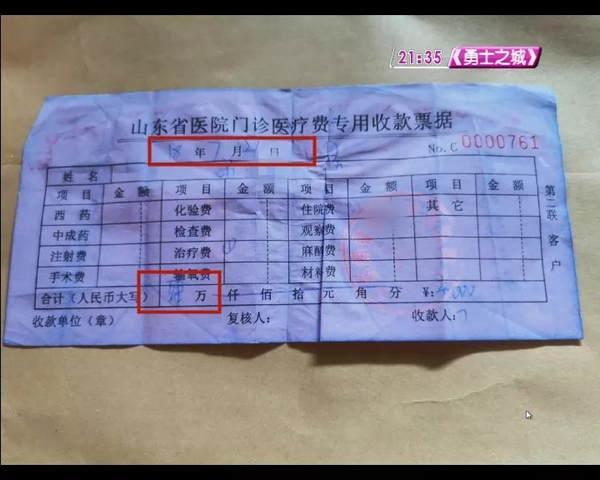 21:35 《勇士之城》
山东省医院门诊医疗费专用收款票据
18 年 7 月 日
No.C 0000761
姓 名
项 目 金 额 项 目 金 额 项 目 金 额 项 目 金 额
西 药 化验费 住院费 其 它
中成药 检查费 观察费
注射费 治疗费 麻醉费
手术费 输氧费 材料费
第二联 客户
合计（人民币大写） 万 仟 佰 拾 元 角 分 ¥:
收款单位（章） 复核人: 收款人: